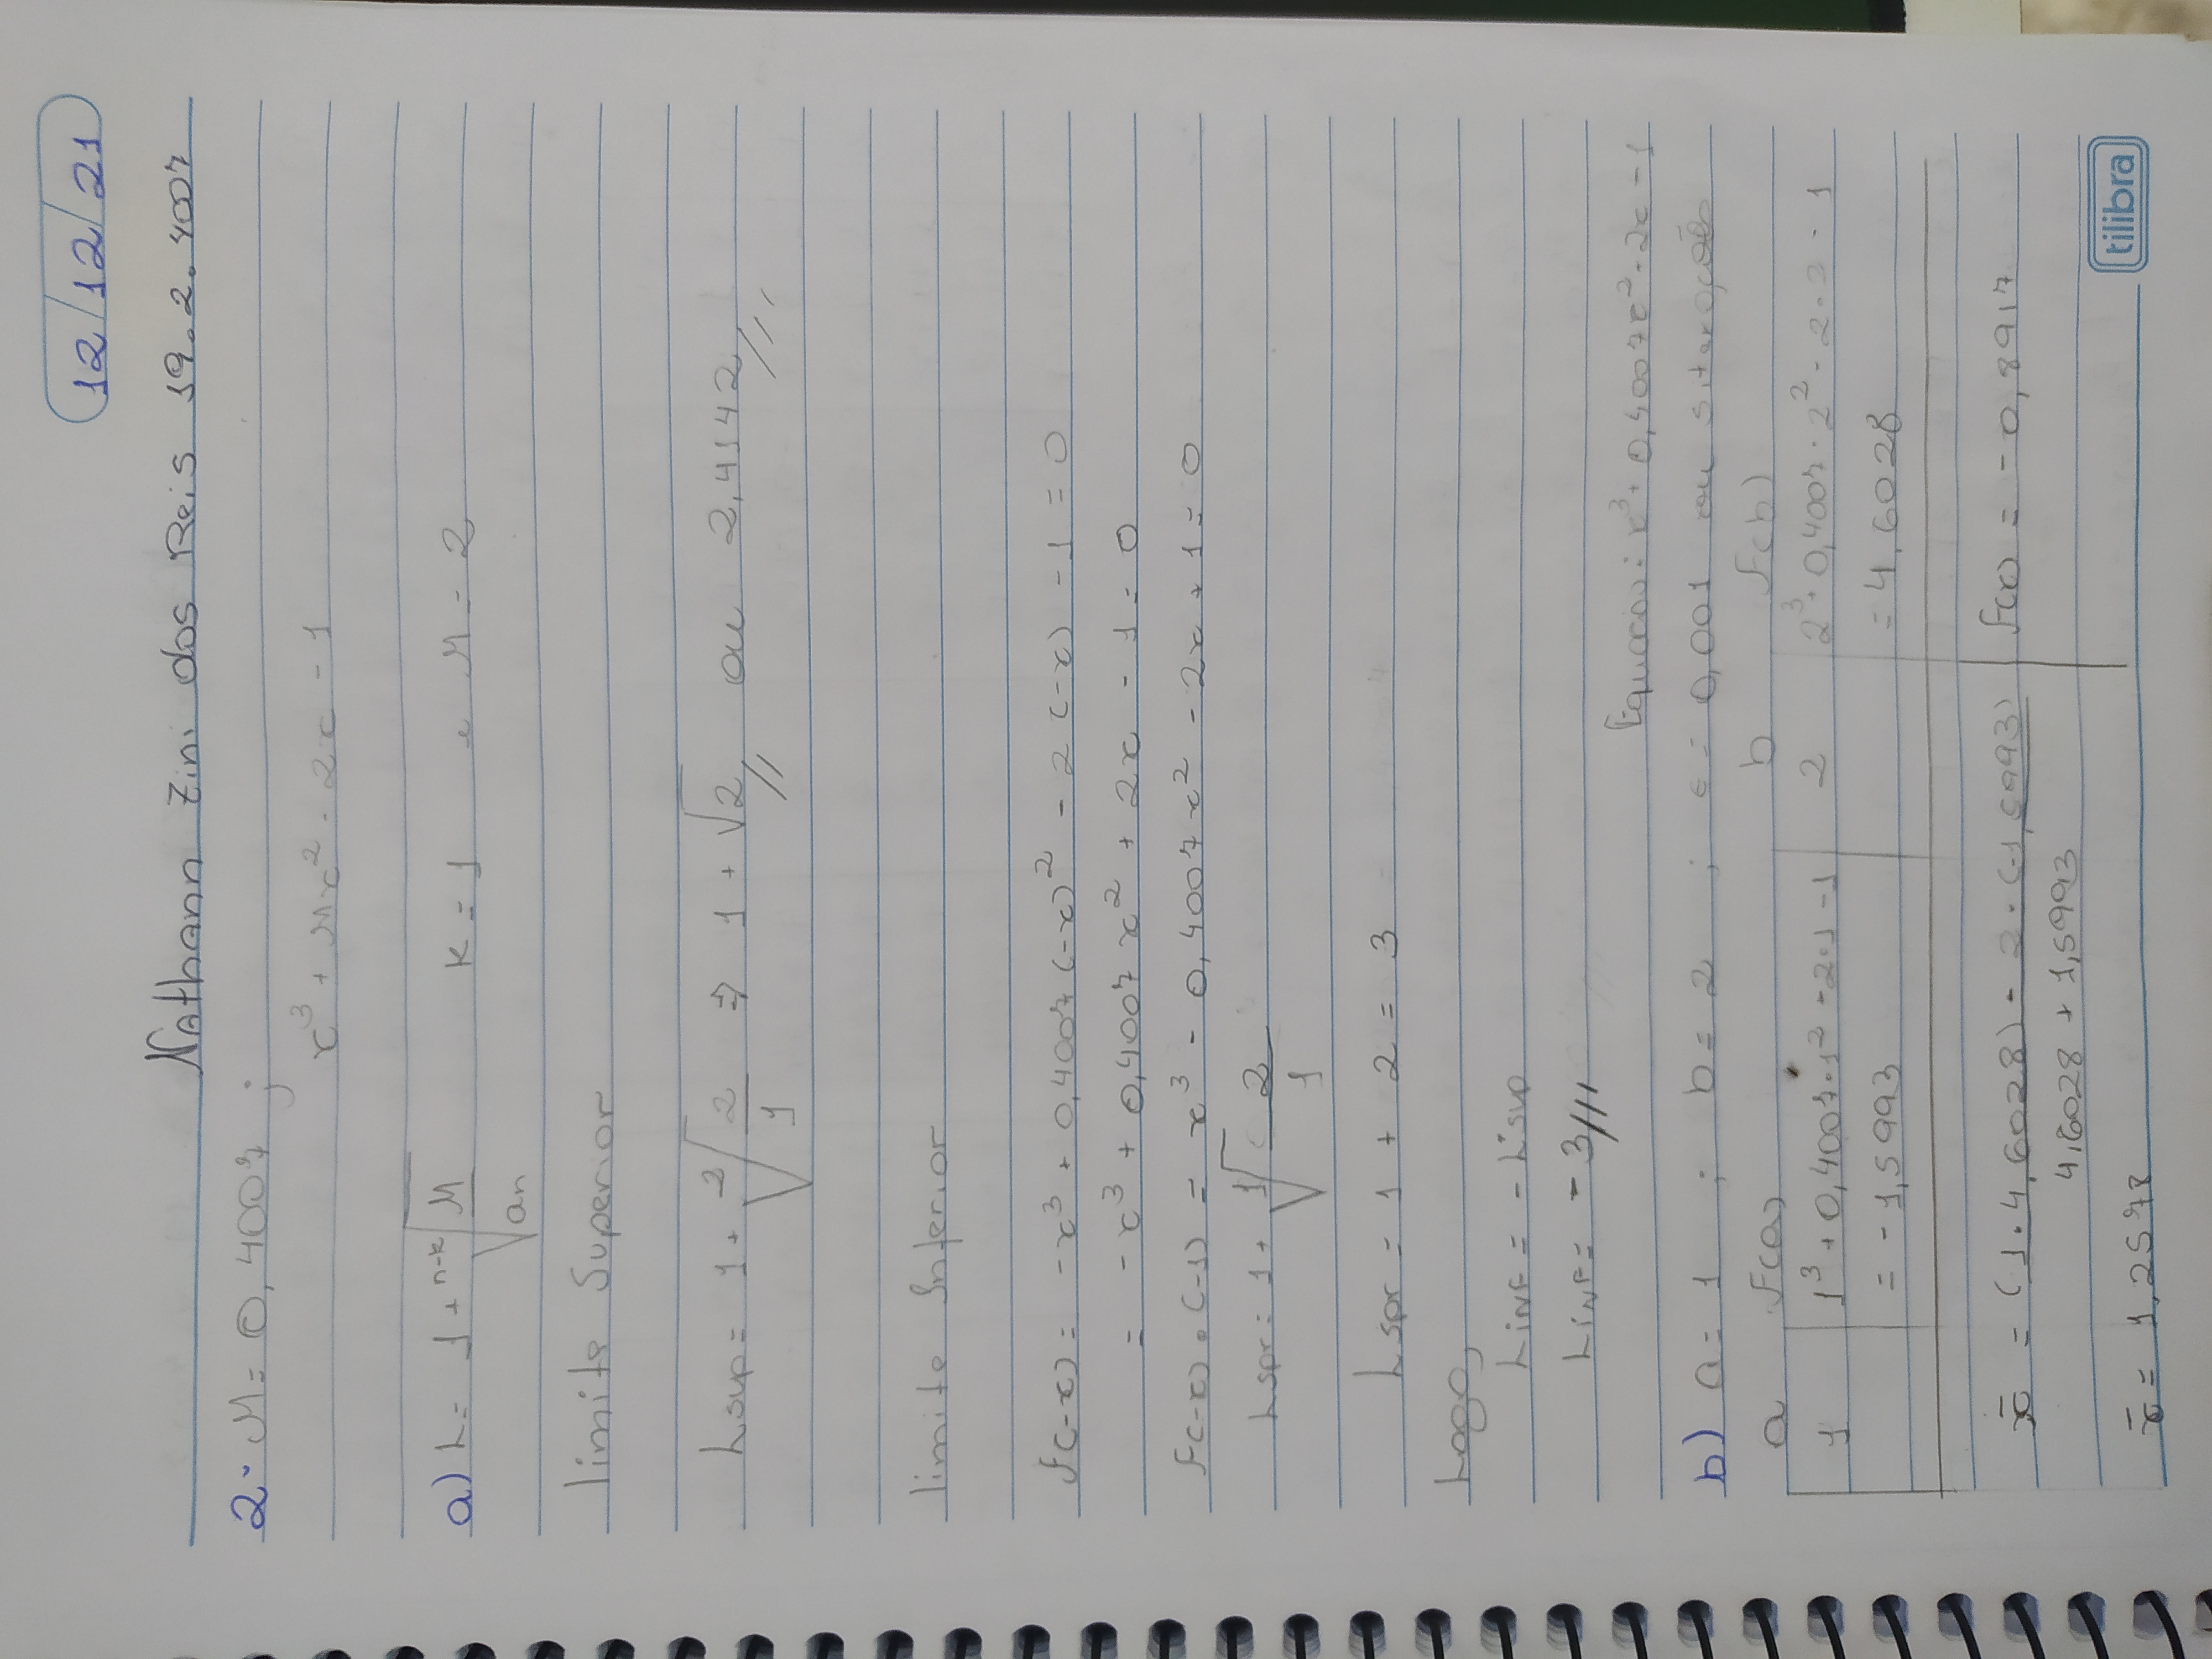 12/12/21
Nathann Zini dos Reis 19.2.4007
2. M = 0,4007 ;
x³ + Mx² - 2x - 1
a) L = 1 + ⁿ⁻ᵏ√(M/an) K = 1 e M = 2
limite Superior
Lsup = 1 + ²√(2/1) ⇒ 1 + √2 ou 2,4142
limite Inferior
F(-x) = -x³ + 0,4007(-x)² - 2(-x) - 1 = 0
= -x³ + 0,4007x² + 2x - 1 = 0
F(-x).(-1) = x³ - 0,4007x² - 2x + 1 = 0
Lspr = 1 + ¹√(2/1)
Lspr = 1 + 2 = 3
Logo,
LiNF = - L'sup
LiNF = - 3
Equacao: x³ + 0,4007x² - 2x - 1
b) a = 1 ; b = 2 ; ϵ = 0,001 ou 5 iterações
a F(a) b F(b)
1 1³ + 0,4007.1² - 2.1 - 1 2 2³ + 0,4007.2² - 2.2 - 1
= -1,5993 = 4,6028
x̄ = (1.4,6028) - 2.(-1,5993) F(x) = -0,8917
4,6028 + 1,5993
x̄ = 1,2578
tilibra